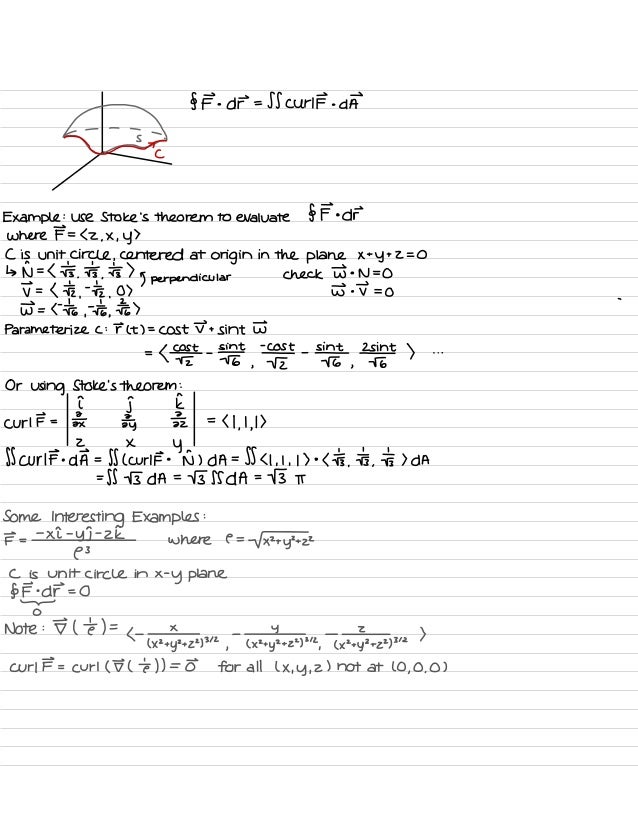 ∮F⃗ · dr⃗ = ∬curlF⃗ · dA⃗
S
C
Example: use Stoke's theorem to evaluate ∮F⃗ · dr⃗
where F⃗ = <z, x, y>
C is unit circle, centered at origin in the plane x+y+z=0
↳ N̂ = <1/√3, 1/√3, 1/√3> perpendicular check w⃗ · N = 0
v⃗ = <1/√2, -1/√2, 0> w⃗ · v⃗ = 0
w⃗ = <-1/√6, -1/√6, 2/√6>
Parameterize C: r⃗(t) = cost v⃗ + sint w⃗
= <cost/√2 - sint/√6, -cost/√2 - sint/√6, 2sint/√6> ...
Or using Stoke's theorem:
curl F⃗ = | î ĵ k̂ |
| ∂/∂x ∂/∂y ∂/∂z | = <1,1,1>
| z x y |
∬curlF⃗ · dA⃗ = ∬(curlF⃗ · N̂) dA = ∬<1,1,1> · <1/√3, 1/√3, 1/√3> dA
= ∬ √3 dA = √3 ∬dA = √3 π
Some Interesting Examples:
F⃗ = (-xî - yĵ - zk̂)/ρ³ where ρ = √x²+y²+z²
C is unit circle in x-y plane
∮F⃗ · dr⃗ = 0
0
Note: ∇⃗(1/ρ) = <-x/(x²+y²+z²)^3/2, -y/(x²+y²+z²)^3/2, -z/(x²+y²+z²)^3/2>
curl F⃗ = curl (∇⃗(1/ρ)) = 0⃗ for all (x,y,z) not at (0,0,0)